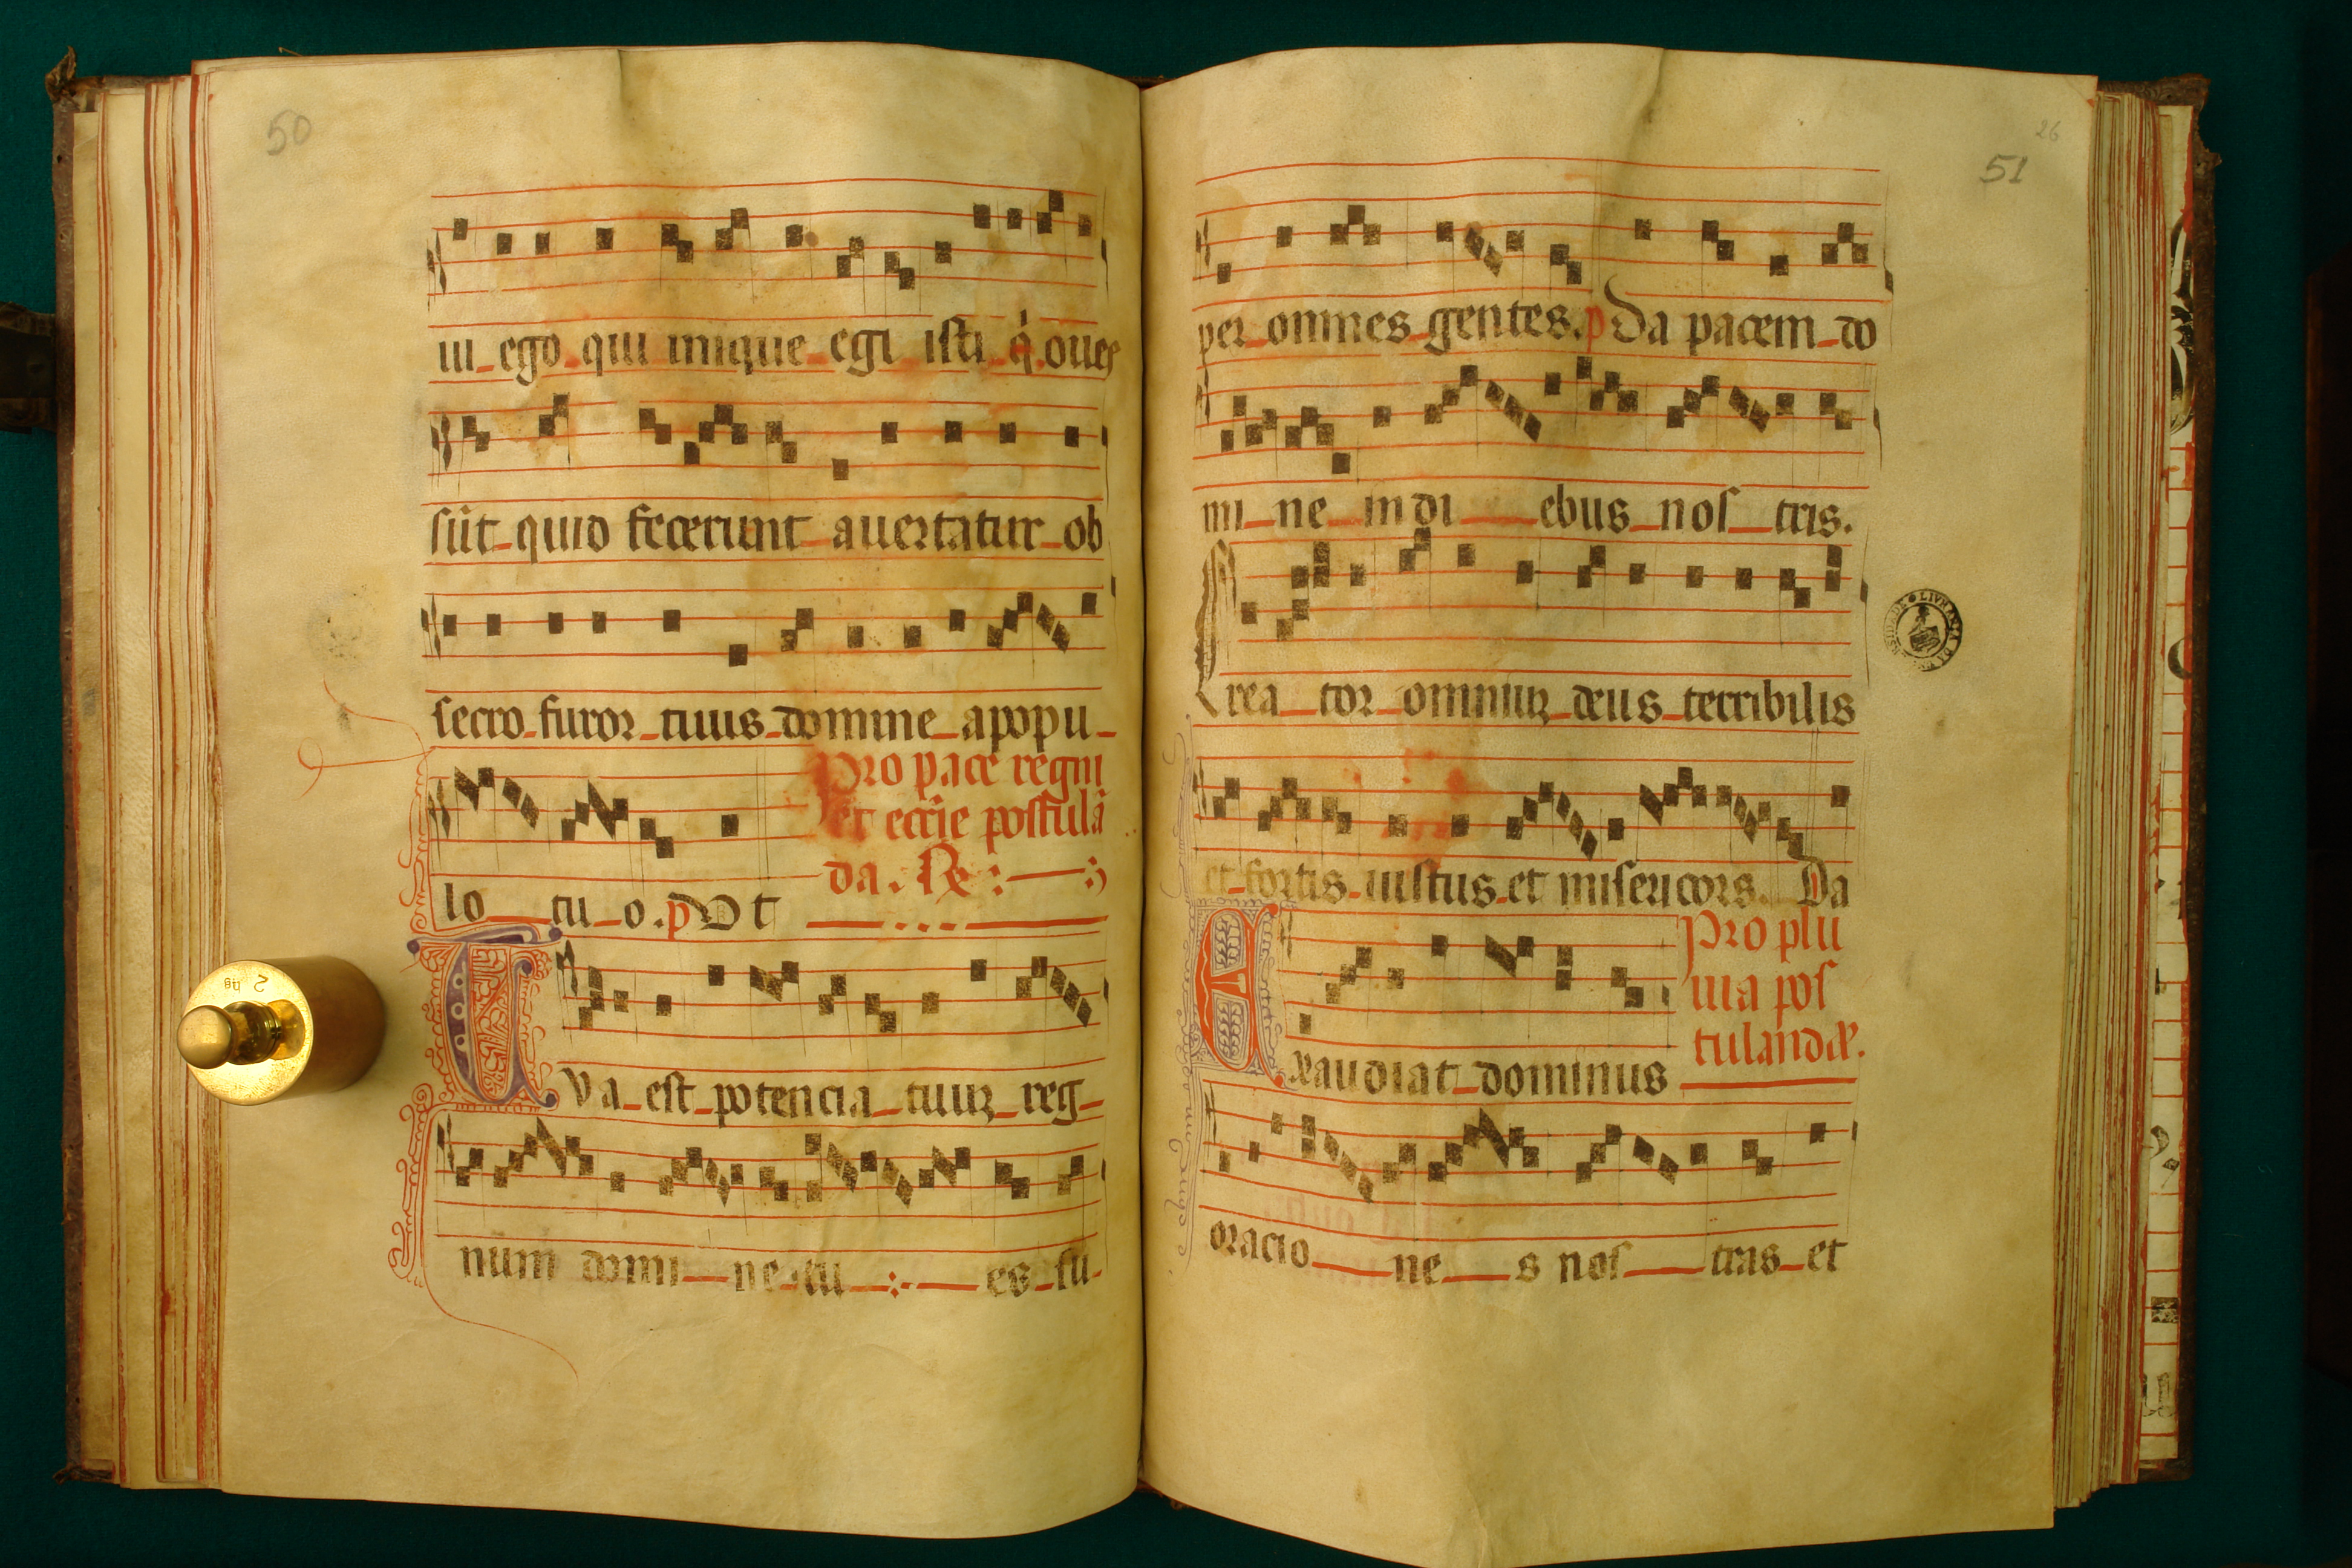 50
ui ego qui inique egi isti q̇ oues
sūt quid fecerunt auertatur ob
secro furor tuus domine apopu
Pro pace regni
et eccīe postulā
da. R̷
lo tu o. p Vt
TVa est potencia tuuꝝ reg
num domi ne tu es su
26
51
per omnes gentes. p Da pacem do
mi ne in di ebus nos tris.
Crea tor omniuꝝ deus terribilis
et fortis iustus et misericors. Da
Pro plu
uia pos
tulandæ.
Exaudiat dominus
oracio ne s nos tras et
2 hg